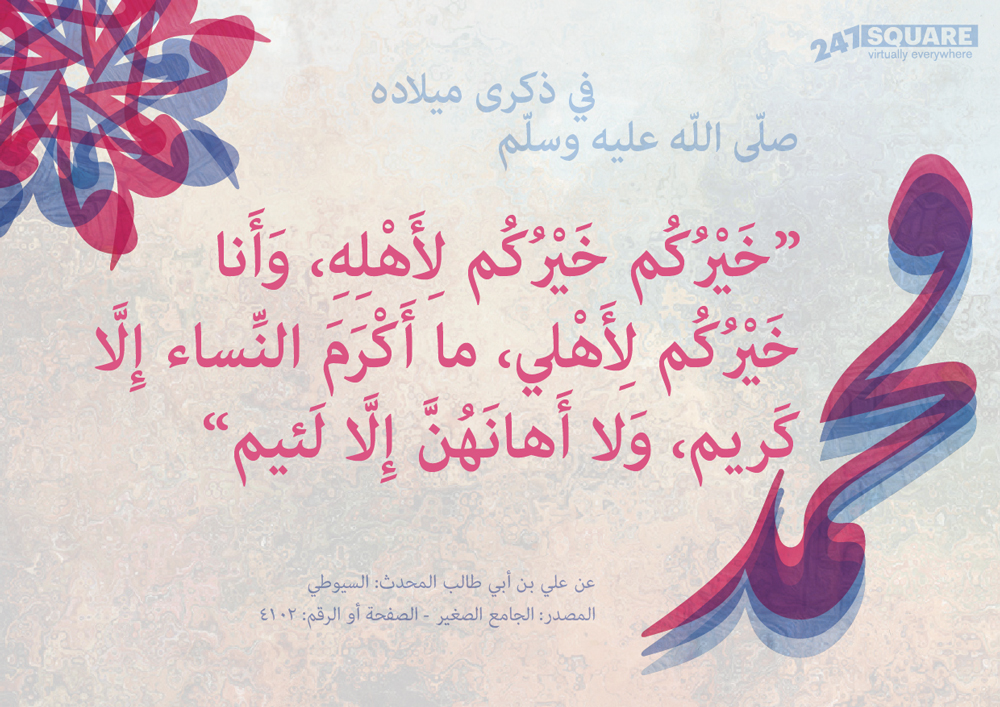 247 SQUARE
virtually everywhere
في ذكرى ميلاده
صلّى اللّه عليه وسلّم
”خَيْرُكُم خَيْرُكُم لِأَهْلِهِ، وَأَنا
خَيْرُكُم لِأَهْلي، ما أَكْرَمَ النِّساء إِلَّا
كَريم، وَلا أَهانَهُنَّ إِلَّا لَئيم“
محمد
عن علي بن أبي طالب المحدث: السيوطي
المصدر: الجامع الصغير - الصفحة أو الرقم: ٤١٠٢